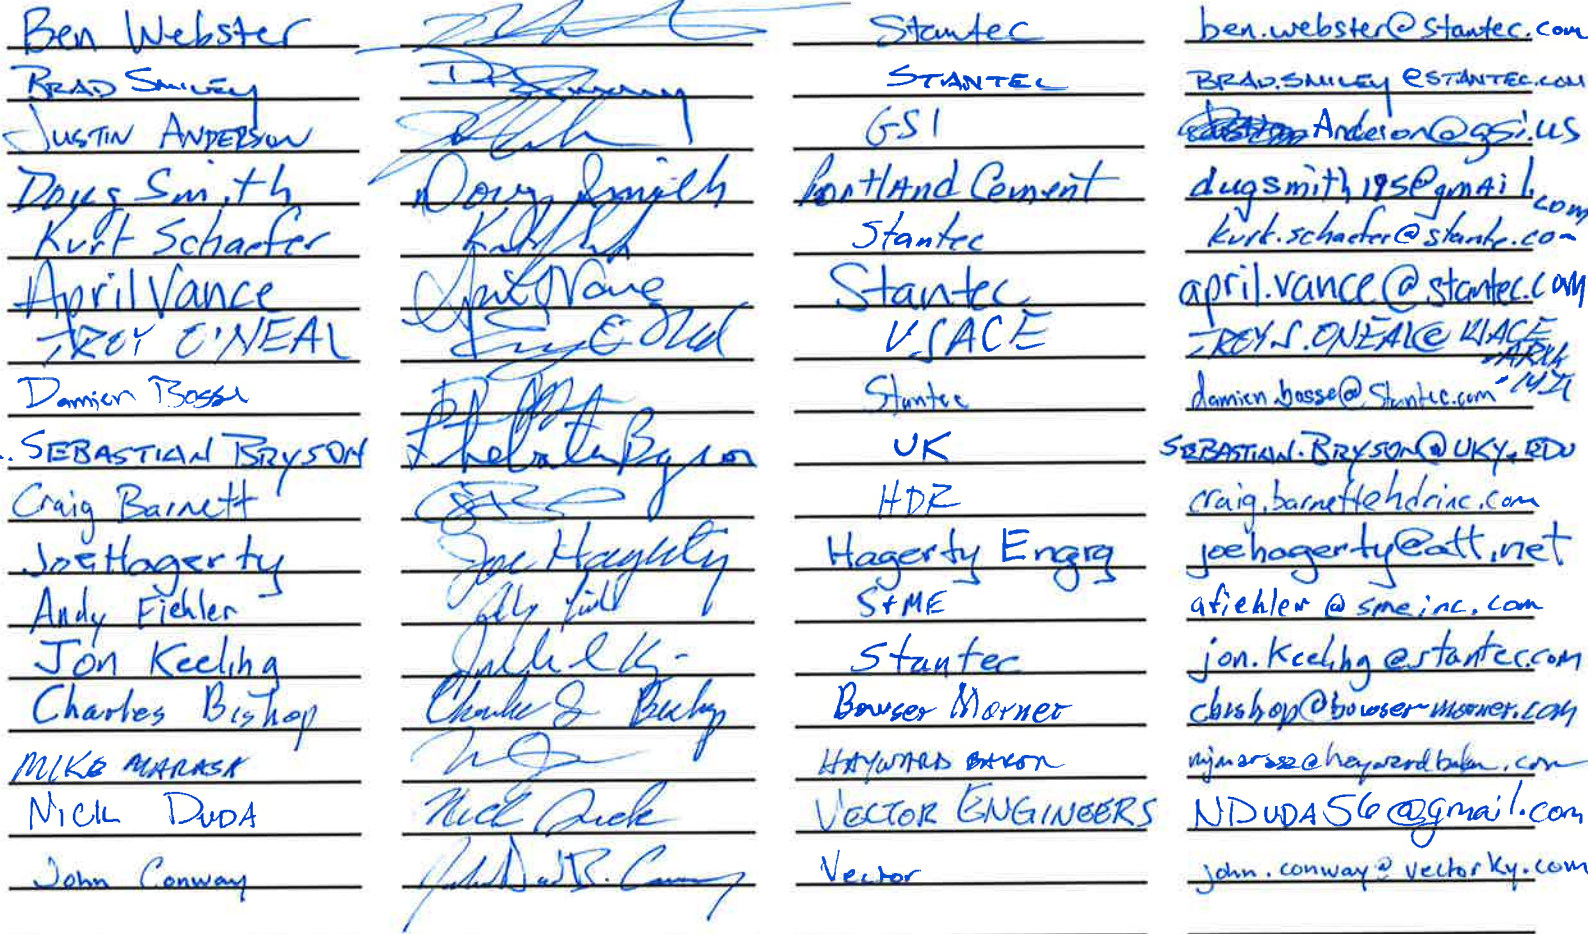 Ben Webster Stantec ben.webster@stantec.com
BRAD SMILEY STANTEC BRAD.SMILEY@STANTEC.COM
JUSTIN ANDERSON GSI Anderson@gsi.us
Doug Smith Doug Smith Portland Cement dugsmith195@gmail.com
Kurt Schaefer Stantec kurt.schaefer@stantec.com
April Vance April Vance Stantec april.vance@stantec.com
TROY O'NEAL USACE TROY.S.ONEAL@USACE.ARMY.MIL
Damien Bosse Stantec damien.bosse@stantec.com
SEBASTIAN BRYSON UK SEBASTIAN.BRYSON@UKY.EDU
Craig Barnett HDR craig.barnett@hdrinc.com
Joe Hagerty Joe Hagerty Hagerty Engrg joehagerty@att.net
Andy Fiehler S+ME afiehler@smeinc.com
Jon Keeling Stantec jon.keeling@stantec.com
Charles Bishop Bowser Morner cbishop@bowser-morner.com
MIKE HAYWARD BAKER
NICK DUDA Nick Duda VECTOR ENGINEERS NDUDA56@gmail.com
John Conway Vector john.conway@vectorky.com